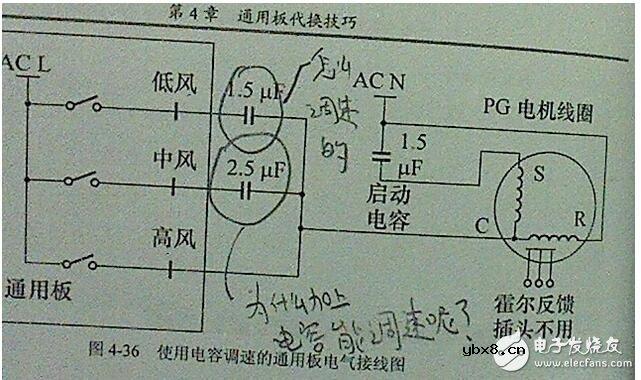 第4章 通用板代换技巧
AC L
低风
1.5 μF
怎么
调速
的
AC N
PG 电机线圈
1.5
μF
中风
2.5 μF
启动
电容
S
C
R
高风
通用板
为什么加上
电容能调速呢?
霍尔反馈
插头不用
图 4-36 使用电容调速的通用板电气接线图
ybx8.cn
电子发烧友
www.elecfans.com